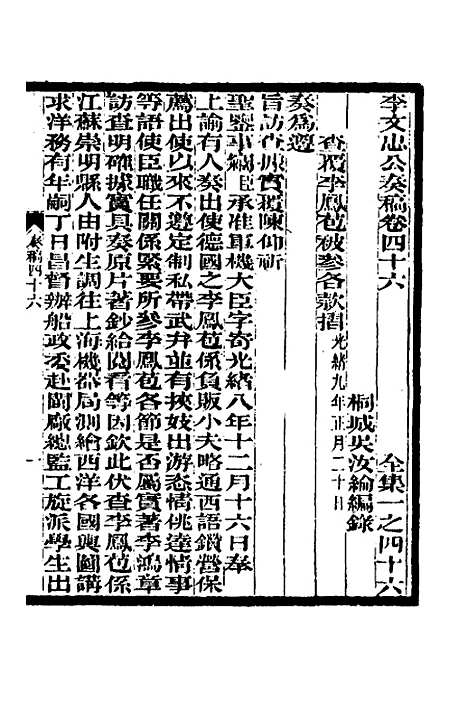 李文忠公奏稿卷四十六　全集一之四十六
桐城吳汝綸編錄
查覆李鳳苞被參各款摺光緒九年正月二十日
奏為遵
旨訪查據實覆陳仰祈
聖鑒事竊臣承准軍機大臣字寄光緒八年十二月十六日奉
上諭有人奏出使德國之李鳳苞係負販小夫略通西語鑽營保
薦出使以來不遵定制私帶武弁並有挾妓出游态情佻達情事
等語使臣職任關係緊要所參李鳳苞各節是否屬實著李鴻章
訪查明確據實具奏原片著鈔給閱看等因欽此伏查李鳳苞係
江蘇崇明縣人由附生調往上海機器局測繪西洋各國輿圖講
求洋務有年嗣丁日昌督辦船政委赴閩廠總監工旋派學生出
奏稿四十六
一